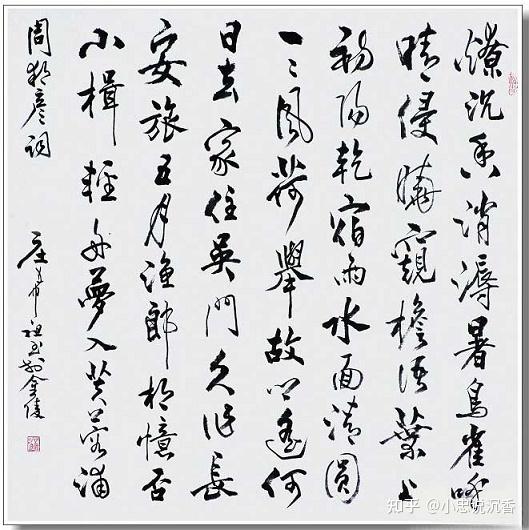 燎沉香消溽暑鳥雀呼
晴侵曉窺檐語葉上
初陽乾宿雨水面清圓
一一風荷舉故鄉遙何
日去家住吳門久作長
安旅五月漁郎相憶否
小楫輕舟夢入芙蓉浦
周邦彥詞
莊希祖書於金陵
知乎 @小忠说沉香